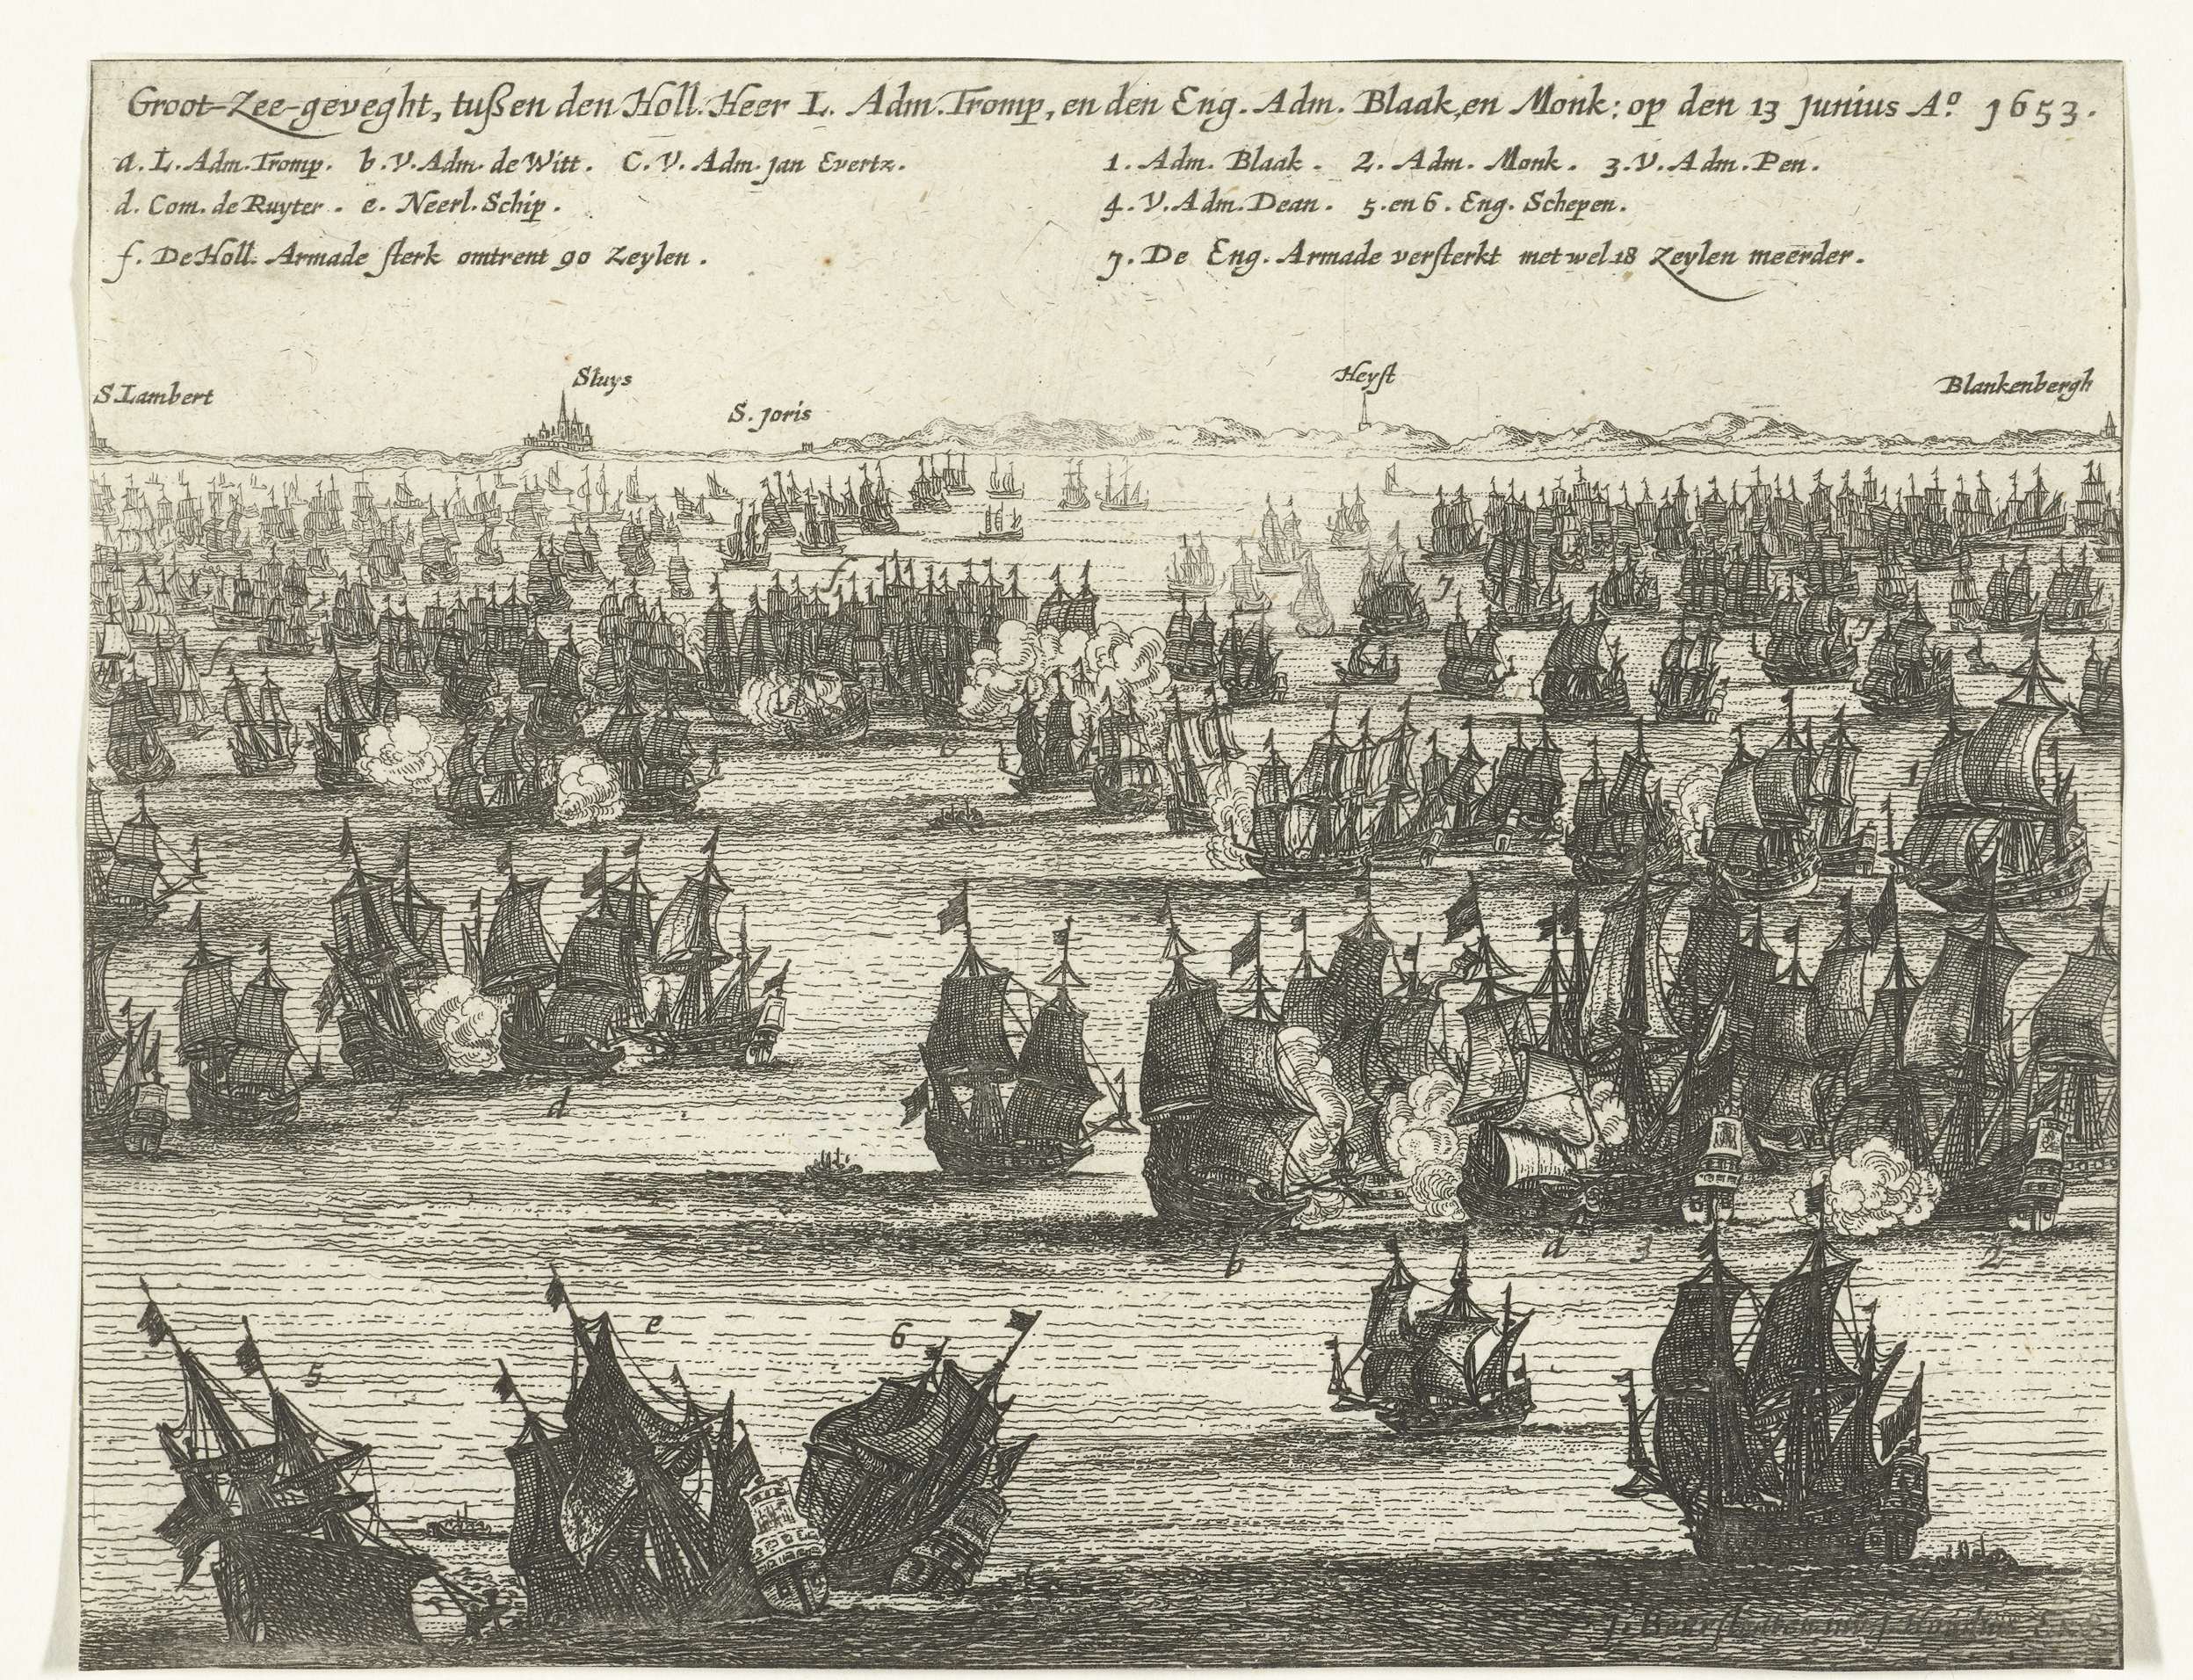 Groot-Zee-geveght, tußen den Holl. Heer L. Adm. Tromp, en den Eng. Adm. Blaak, en Monk; op den 13 Junius Aº 1653.
a. L. Adm. Tromp. b. V. Adm. de Witt. C. V. Adm. Jan Evertz.
d. Com. de Ruyter. e. Neerl. Schip.
f. De Holl. Armade sterk omtrent 90 Zeylen.
1. Adm. Blaak. 2. Adm. Monk. 3. V. Adm. Pen.
4. V. Adm. Dean. 5. en 6. Eng. Schepen.
7. De Eng. Armade versterkt met wel 18 Zeylen meerder.
S. Lambert
Sluys
S. Joris
Heyst
Blankenbergh
f
7
1
d
b
a
3
2
5
e
6
J. Beerstraten inv. J.